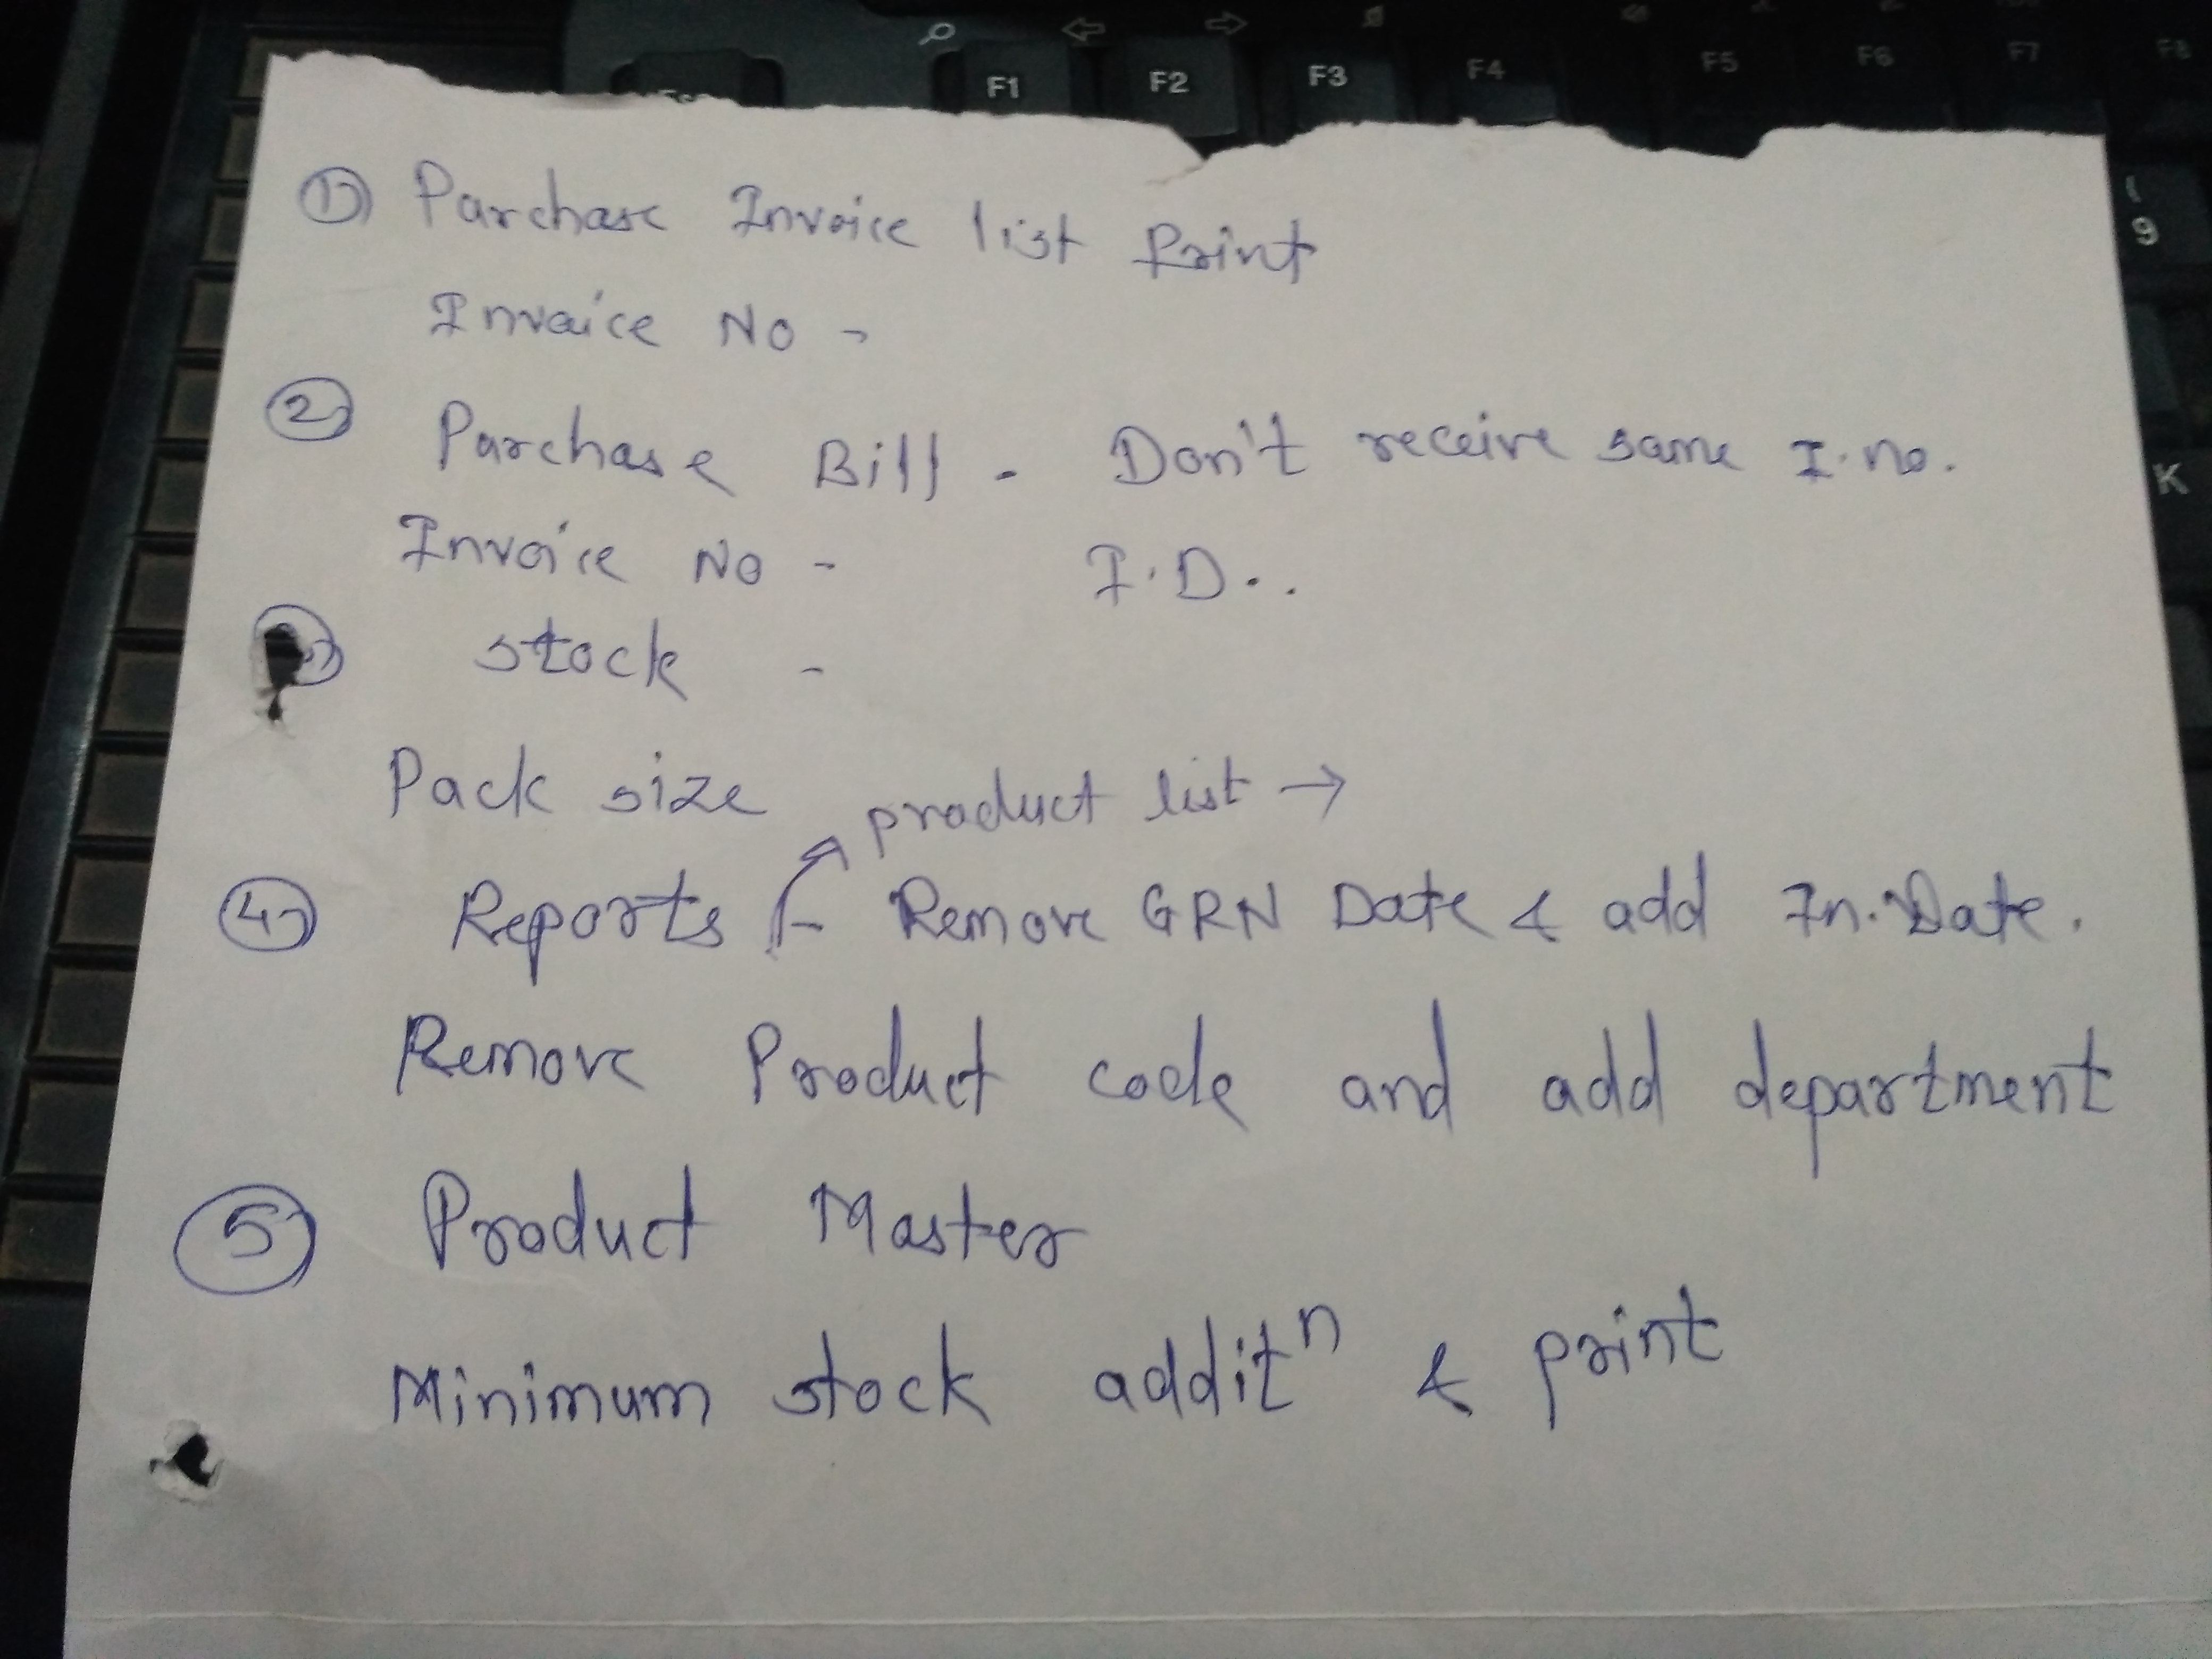 F1 F2 F3 F4 F5 F6 F7 F8
9
K
1) Parchase Invoice list Print
Invoice No -
2) Parchase Bill - Don't receive same I. no.
Invoice No - I.D..
3) stock -
Pack size product list →
4) Reports - Remove GRN Date & add In. Date.
Remove Product code and add department
5) Product Master
Minimum stock additⁿ & print